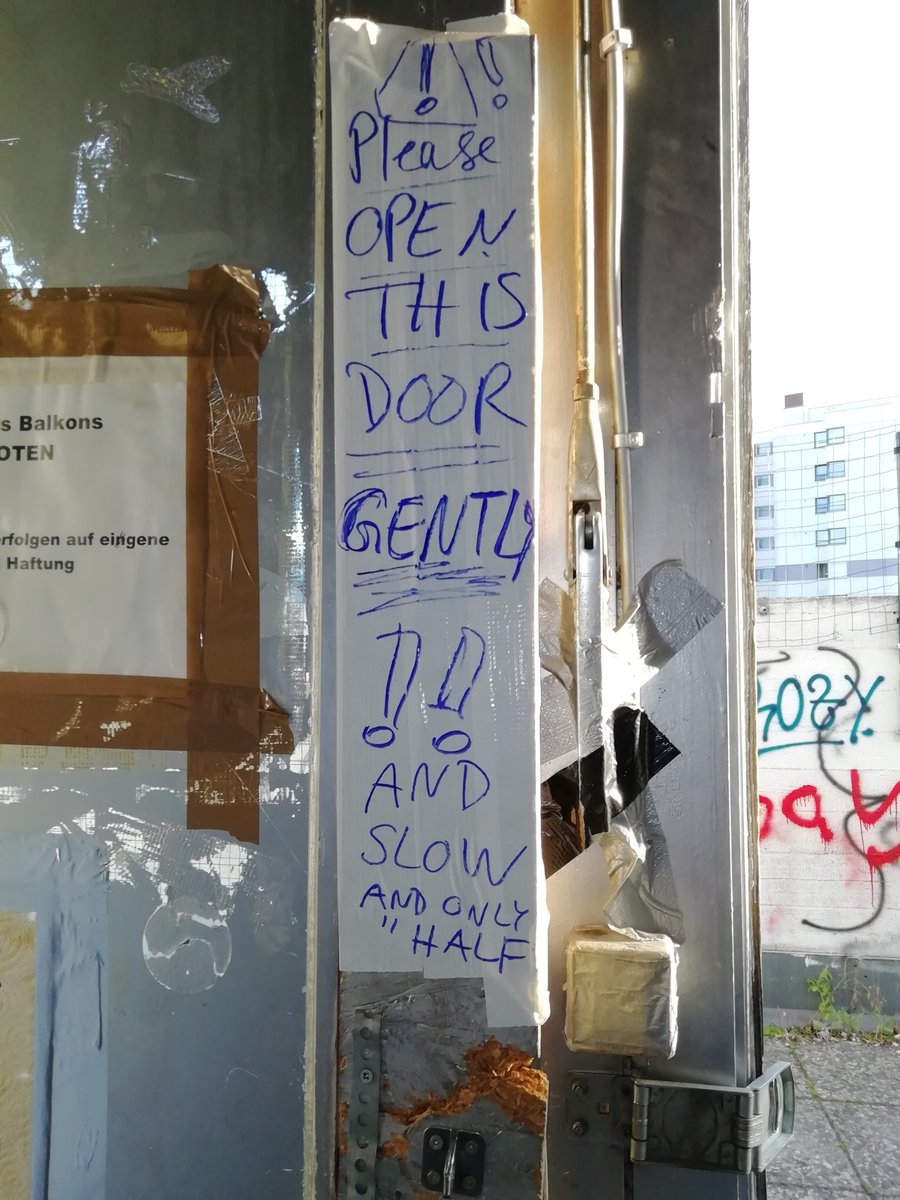 ! !
Please
OPEN
THIS
DOOR
GENTLY
!!
AND
SLOW
AND ONLY
" HALF
s Balkons
OTEN
erfolgen auf eingene
Haftung